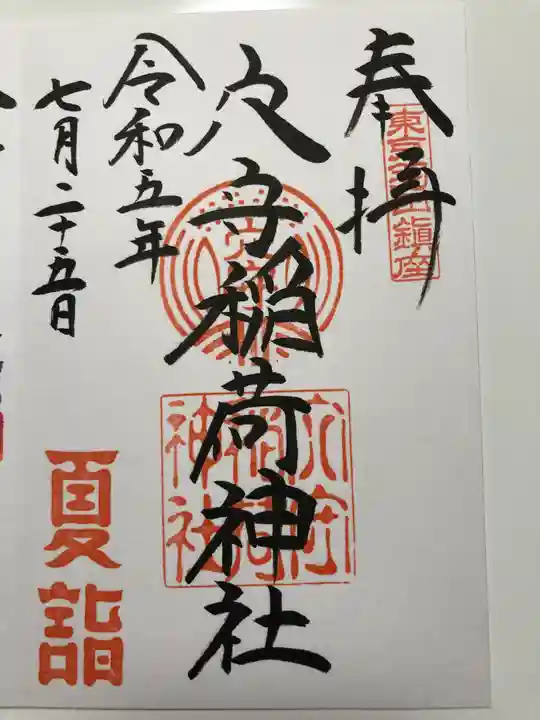 奉拝
東京羽田鎮座
穴守稲荷神社
穴守稲荷神社
令和五年
七月二十五日
夏詣